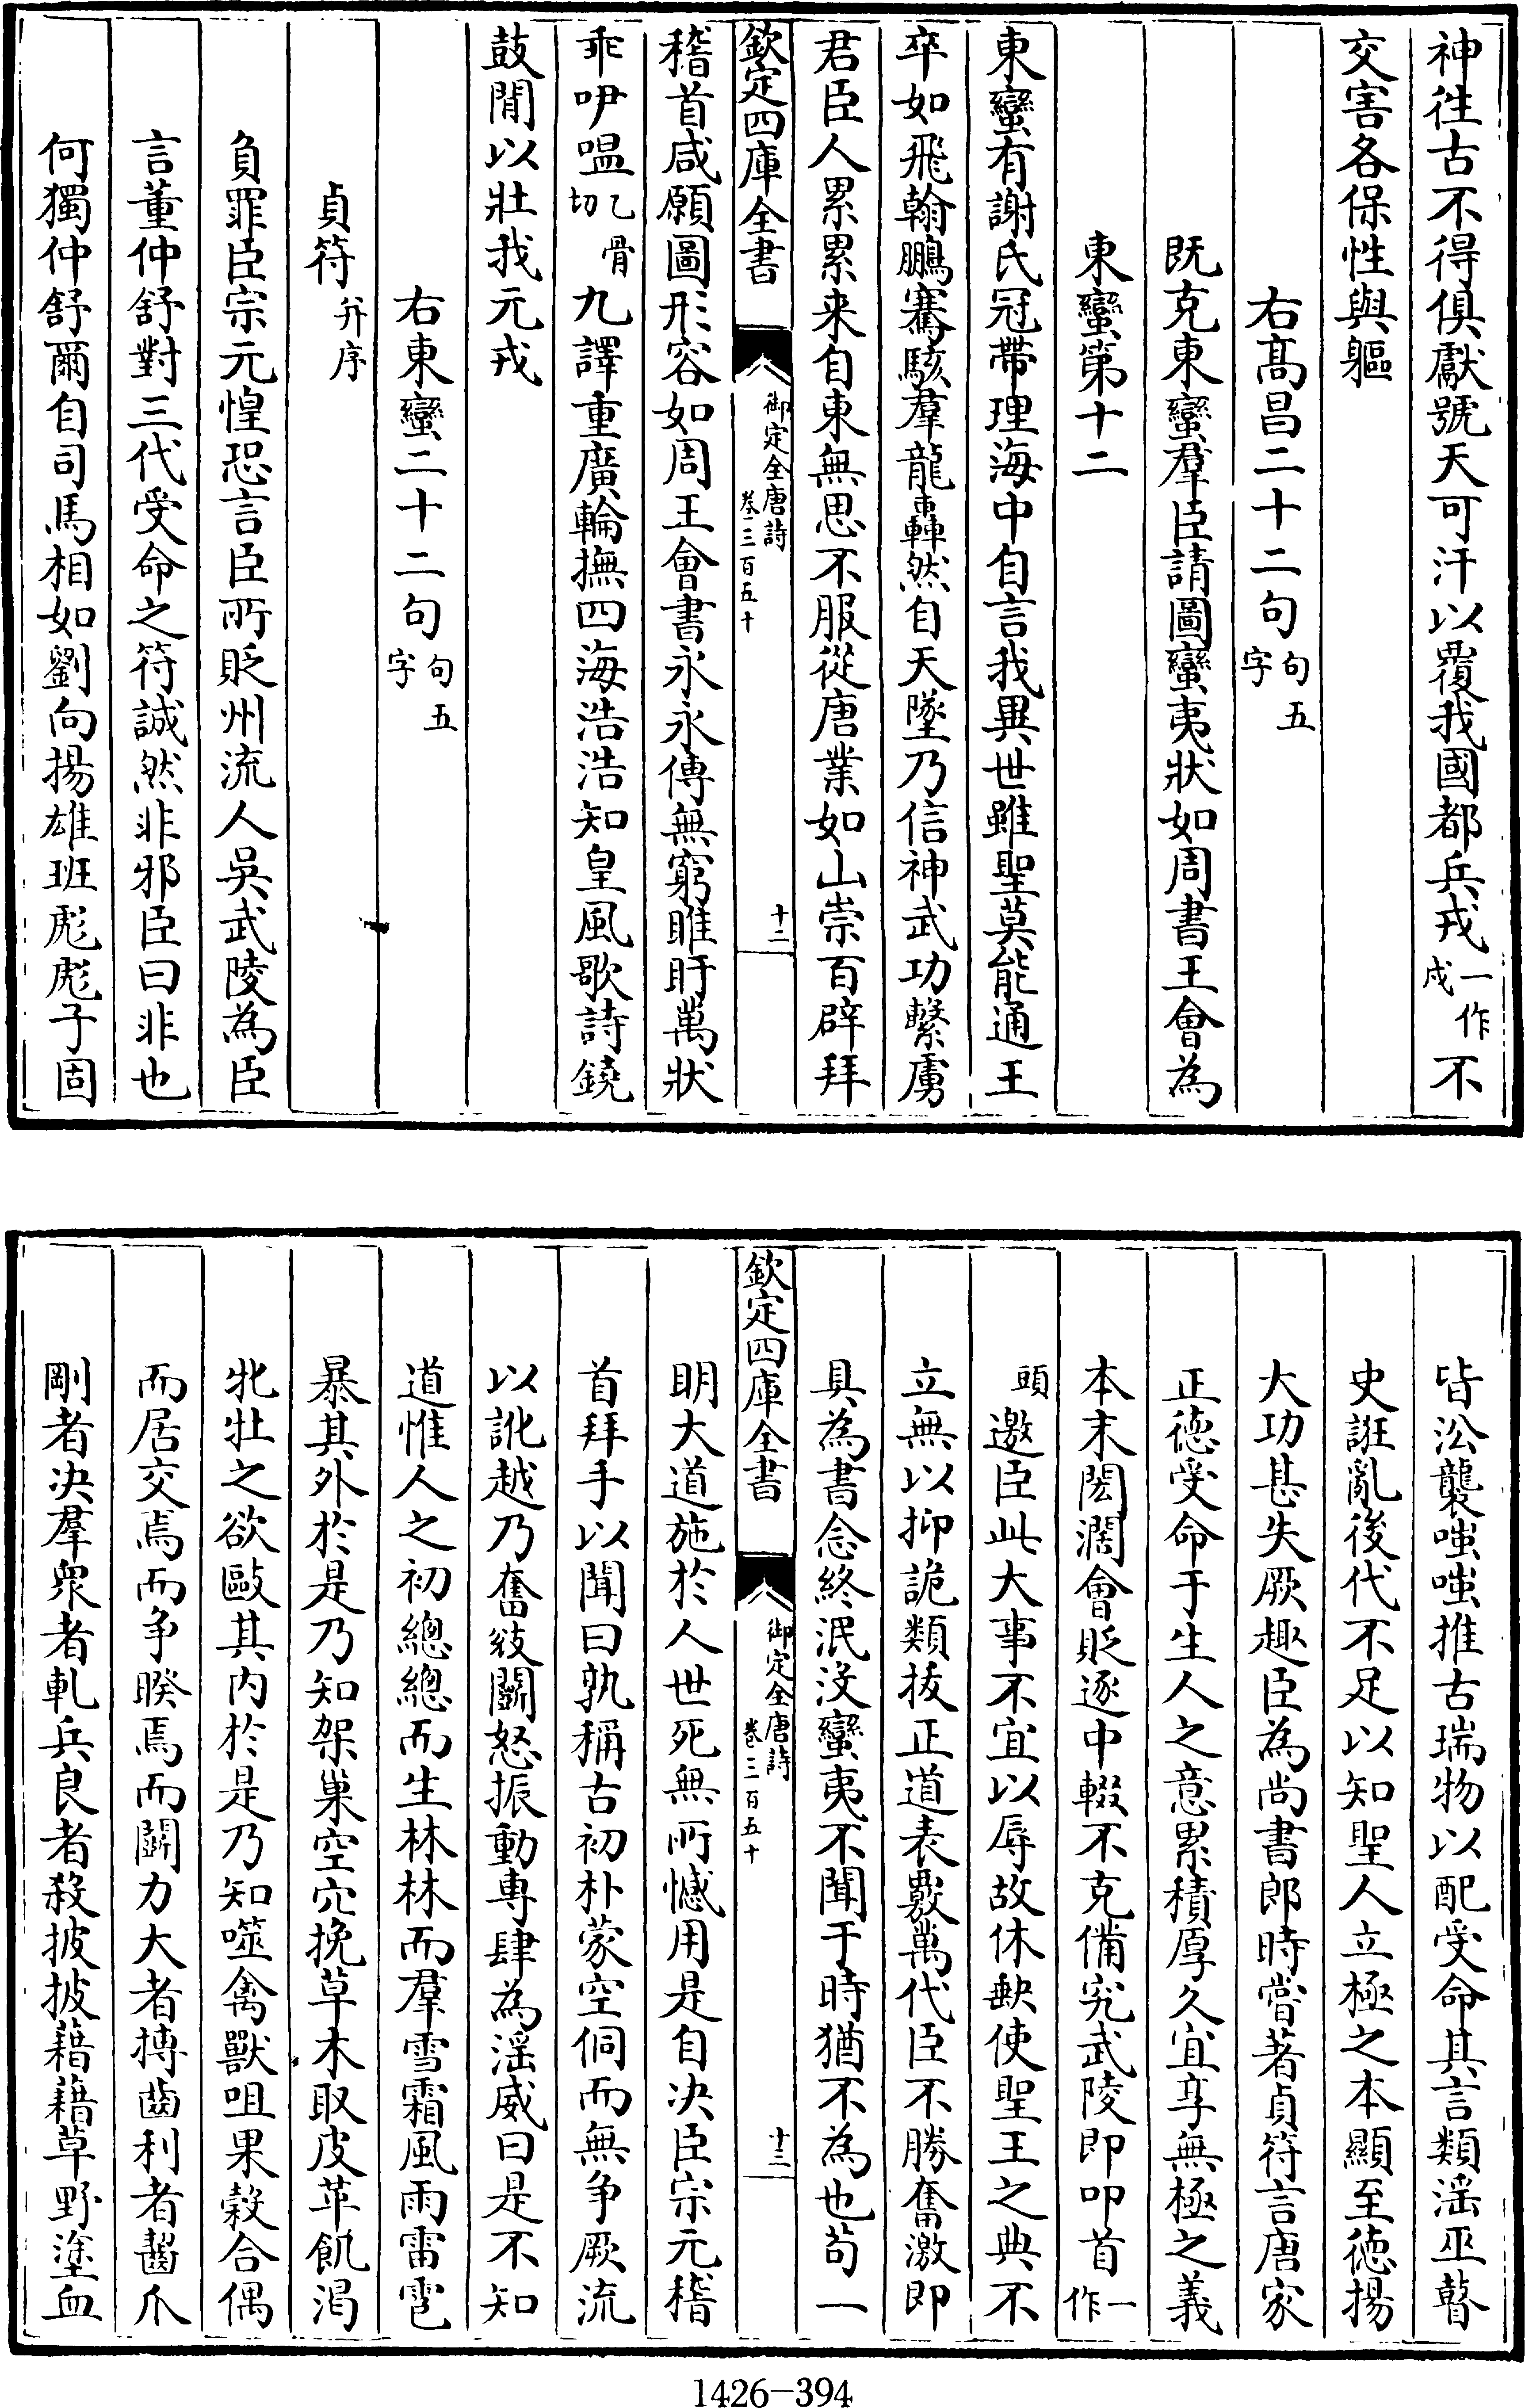 神徃古不得俱獻號天可汗以覆我國都兵戎一作戍不
交害各保性與軀
右髙昌二十二句句五字
既克東蠻羣臣請圖蠻夷狀如周書王會為
東蠻第十二
東蠻有謝氏冠帶理海中自言我異世雖聖莫能通王
卒如飛翰鵬騫駭羣龍轟然自天墜乃信神武功繫虜
君臣人累累来自東無思不服從唐業如山崇百辟拜
欽定四庫全書
御定全唐詩
卷三百五十
十二
稽首咸願圖形容如周王會書永永傳無窮睢盱萬狀
乖咿嗢乙骨切九譯重廣輪撫四海浩浩知皇風歌詩鐃
鼓閒以壯我元戎
右東蠻二十二句句五字
貞符并序
負罪臣宗元惶恐言臣所貶州流人吳武陵為臣
言董仲舒對三代受命之符誠然非邪臣曰非也
何獨仲舒爾自司馬相如劉向揚雄班彪彪子固
皆沿襲嗤嗤推古瑞物以配受命其言類滛巫瞽
史誑亂後代不足以知聖人立極之本顯至德揚
大功甚失厥趣臣為尚書郎時嘗著貞符言唐家
正德受命于生人之意累積厚久宜享無極之義
本末閎濶會貶逐中輟不克備究武陵即叩首一作
頭邀臣此大事不宜以辱故休缺使聖王之典不
立無以抑詭類拔正道表覈萬代臣不勝奮激即
具為書念終泯没蠻夷不聞于時猶不為也苟一
欽定四庫全書
御定全唐詩
卷三百五十
十三
明大道施於人世死無所憾用是自决臣宗元稽
首拜手以聞曰孰稱古初朴蒙空侗而無争厥流
以訛越乃奮敚鬬怒振動專肆為滛威曰是不知
道惟人之初總總而生林林而羣雪霜風雨雷雹
暴其外於是乃知架巢空穴挽草木取皮革飢渴
牝牡之欲敺其内於是乃知噬禽獸咀果榖合偶
而居交焉而争睽焉而鬬力大者搏齒利者齧爪
剛者决羣衆者軋兵良者殺披披藉藉草野塗血
1426-394